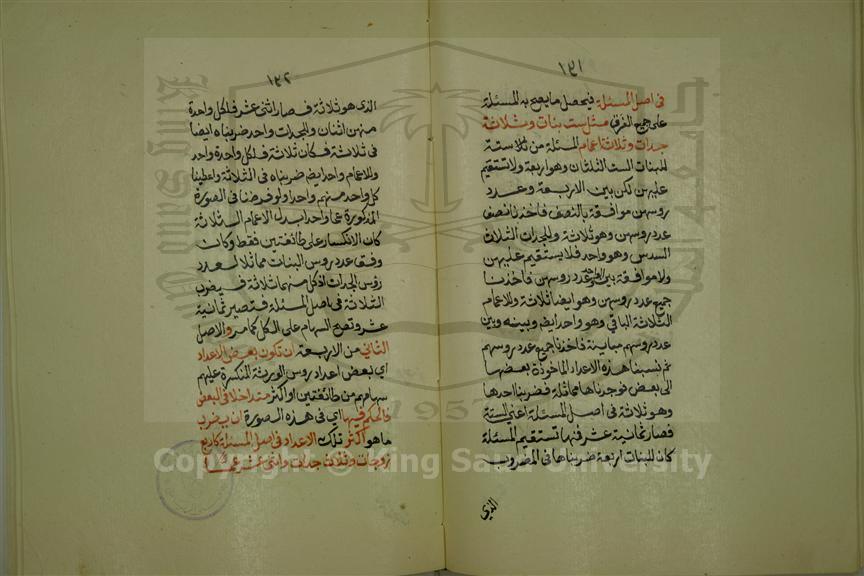 ١٩١
في اصل المسئلة فيحصل ما يصح به المسئلة
على جميع الفرق مثل ست بنات وثلاثة
جدات وثلاثة اعمام المسئلة من ستة
للبنات الست الثلثان وهو اربعة ولا تستقيم
عليهن لكن بين الاربعة وعدد
روسهن موافقة بالنصف فاخذنا نصف
عدد روسهن وهو ثلاثة وللجدات الثلاث
السدس وهو واحد فلا يستقيم عليهن
ولا موافقة بين الواحد وعدد روسهن فاخذنا
جميع عدد روسهن وهو ايضا ثلاثة وللاعمام
الثلاثة الباقي وهو واحد ايض وبينه وبين
عدد روسهم مباينة فاخذنا جميع عدد روسهم
ثم نسبنا هذه الاعداد الماخوذة بعضها
الى بعض فوجدناها مماثلة فضربنا احدها
وهو ثلاثة في اصل المسئلة اعني الستة
فصار ثمانية عشر فمنها تستقيم المسئلة
كان للبنات اربعة ضربناها في المضروب
الذي
١٩٢
الذي هو ثلاثة فصار اثنى عشر فلكل واحدة
منهن اثنان وللجدات واحد ضربناه ايضا
في ثلاثة فكان ثلاثة فلكل واحدة واحد
وللاعمام واحد ايض ضربناه في الثلاثة واعطينا
كل واحد منهم واحدا ولو فرضنا في الصورة
المذكورة عما واحدا بدل الاعمام الثلاثة
كان الانكسار على طائفتين فقط وكان
وفق عدد روس البنات مماثلا لعدد
رؤس الجدات اذ كل منهما ثلاثة فيضرب
الثلاثة في اصل المسئلة فتصير ثمانية
عشر وتصح السهام على الكل كما مر والاصل
الثاني من الاربعة ان تكون بعض الاعداد
اي بعض اعداد روس الورثة المنكسرة عليهم
سهامهم من طائفتين او اكثر متداخلا في البعض
فالحكم فيها اي في هذه الصورة ان يضرب
ما هو اكثر تلك الاعداد في اصل المسئلة كاربع
زوجات وثلاث جدات واثنى عشر عما
1957
Copyright © King Saud University